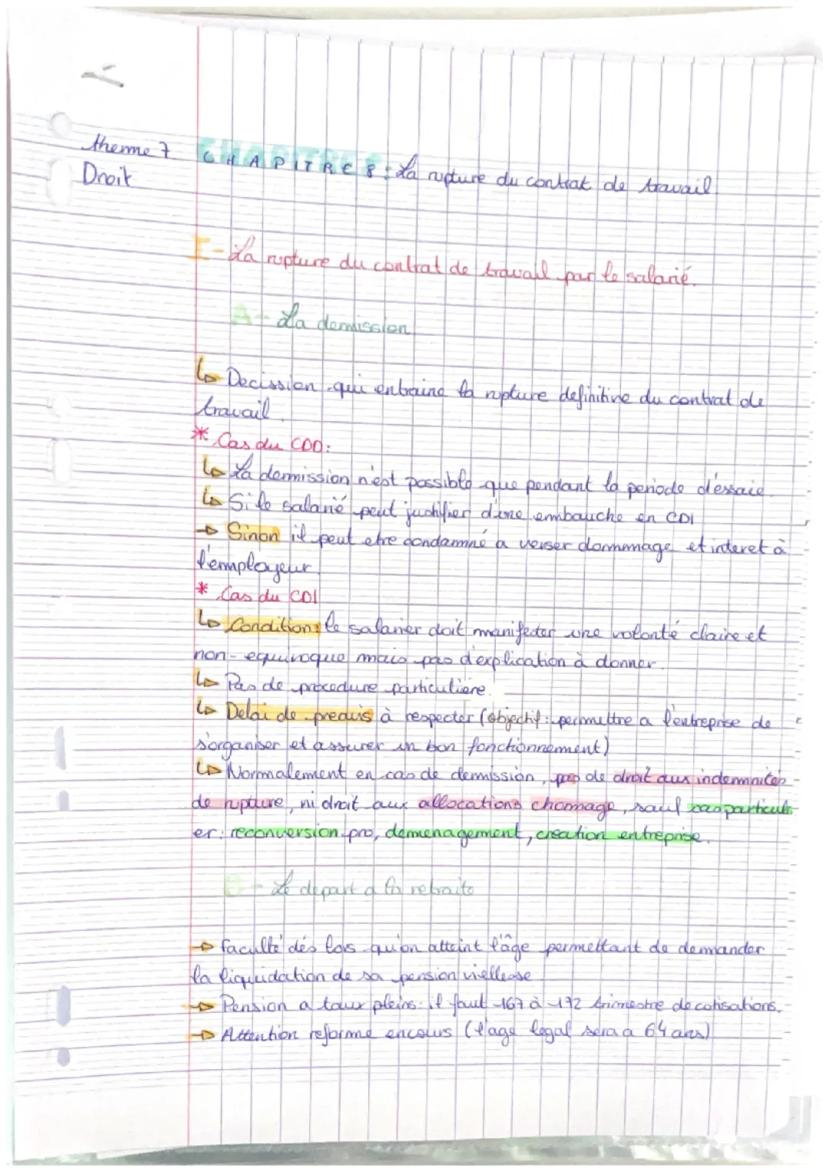 theme 7
Droit
CHAPITRE 8 : La rupture du contrat de travail
I - La rupture du contrat de travail par le salarié.
A - La demission
↳ Decission qui entraine la rupture definitive du contrat de
travail
* Cas du CDD :
↳ La demission n'est possible que pendant la periode d'essaie
↳ Si le salarié peut justifier d'une embauche en CDI
→ Sinon il peut etre condamné a verser dommage et interet à
l'employeur
* Cas du CDI
↳ Condition : le salarier doit manifester une volonté claire et
non-equivoque mais pas d'explication à donner.
↳ Pas de procedure particuliere.
↳ Delai de preavis à respecter (objectif : permettre a l'entreprise de
s'organiser et assurer un bon fonctionnement)
↳ Normalement en cas de demission, pas de droit aux indemnités
de rupture, ni droit aux allocations chomage, sauf cas particuli
er : reconversion pro, demenagement, creation entreprise.
B - Le depart a la retraite
→ faculté dés lors qu'on atteint l'âge permettant de demander
la liquidation de sa pension viellesse
→ Pension a taux pleins : il faut 167 à 172 trimestre de cotisations.
→ Attention reforme encours (l'age legal sera a 64 ans)